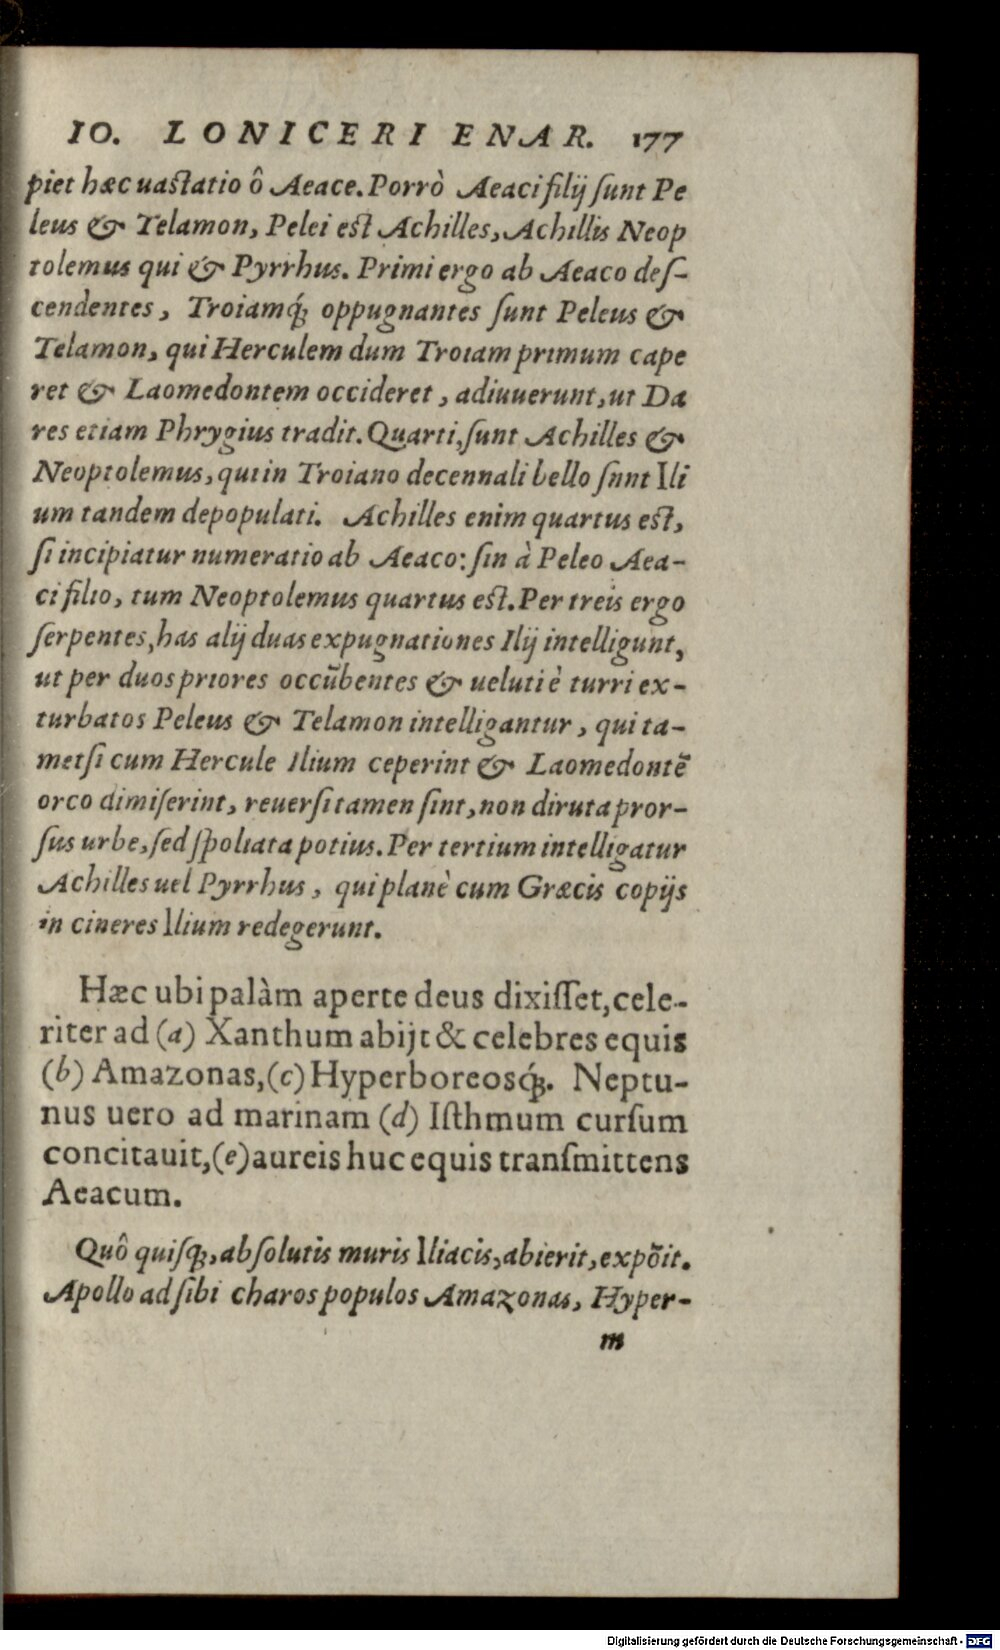 IO. LONICERI ENAR. 177
piet hæc uaſtatio ô Aeace. Porrò Aeaci filij ſunt Pe
leus & Telamon, Pelei eſt Achilles, Achillis Neop
tolemus qui & Pyrrhus. Primi ergo ab Aeaco deſ-
cendentes, Troiamq́; oppugnantes ſunt Peleus &
Telamon, qui Herculem dum Troiam primum cape
ret & Laomedontem occideret, adiuuerunt, ut Da
res etiam Phrygius tradit. Quarti, ſunt Achilles &
Neoptolemus, qui in Troiano decennali bello ſunt Ili
um tandem depopulati. Achilles enim quartus eſt,
ſi incipiatur numeratio ab Aeaco: ſin à Peleo Aea-
ci filio, tum Neoptolemus quartus eſt. Per treis ergo
ſerpentes, has alij duas expugnationes Ilij intelligunt,
ut per duos priores occũbentes & ueluti è turri ex-
turbatos Peleus & Telamon intelligantur, qui ta-
metſi cum Hercule Ilium ceperint & Laomedontẽ
orco dimiſerint, reuerſi tamen ſint, non diruta pror-
ſus urbe, ſed ſpoliata potius. Per tertium intelligatur
Achilles uel Pyrrhus, qui planè cum Græcis copijs
in cineres Ilium redegerunt.
Hæc ubi palàm aperte deus dixiſſet, cele-
riter ad (a) Xanthum abijt & celebres equis
(b) Amazonas, (c) Hyperboreosq́;. Neptu-
nus uero ad marinam (d) Iſthmum curſum
concitauit, (e) aureis huc equis tranſmittens
Aeacum.
Quô quiſq;, abſolutis muris Iliacis, abierit, expõit.
Apollo ad ſibi charos populos Amazonas, Hyper-
m
Digitalisierung gefördert durch die Deutsche Forschungsgemeinschaft - DFG